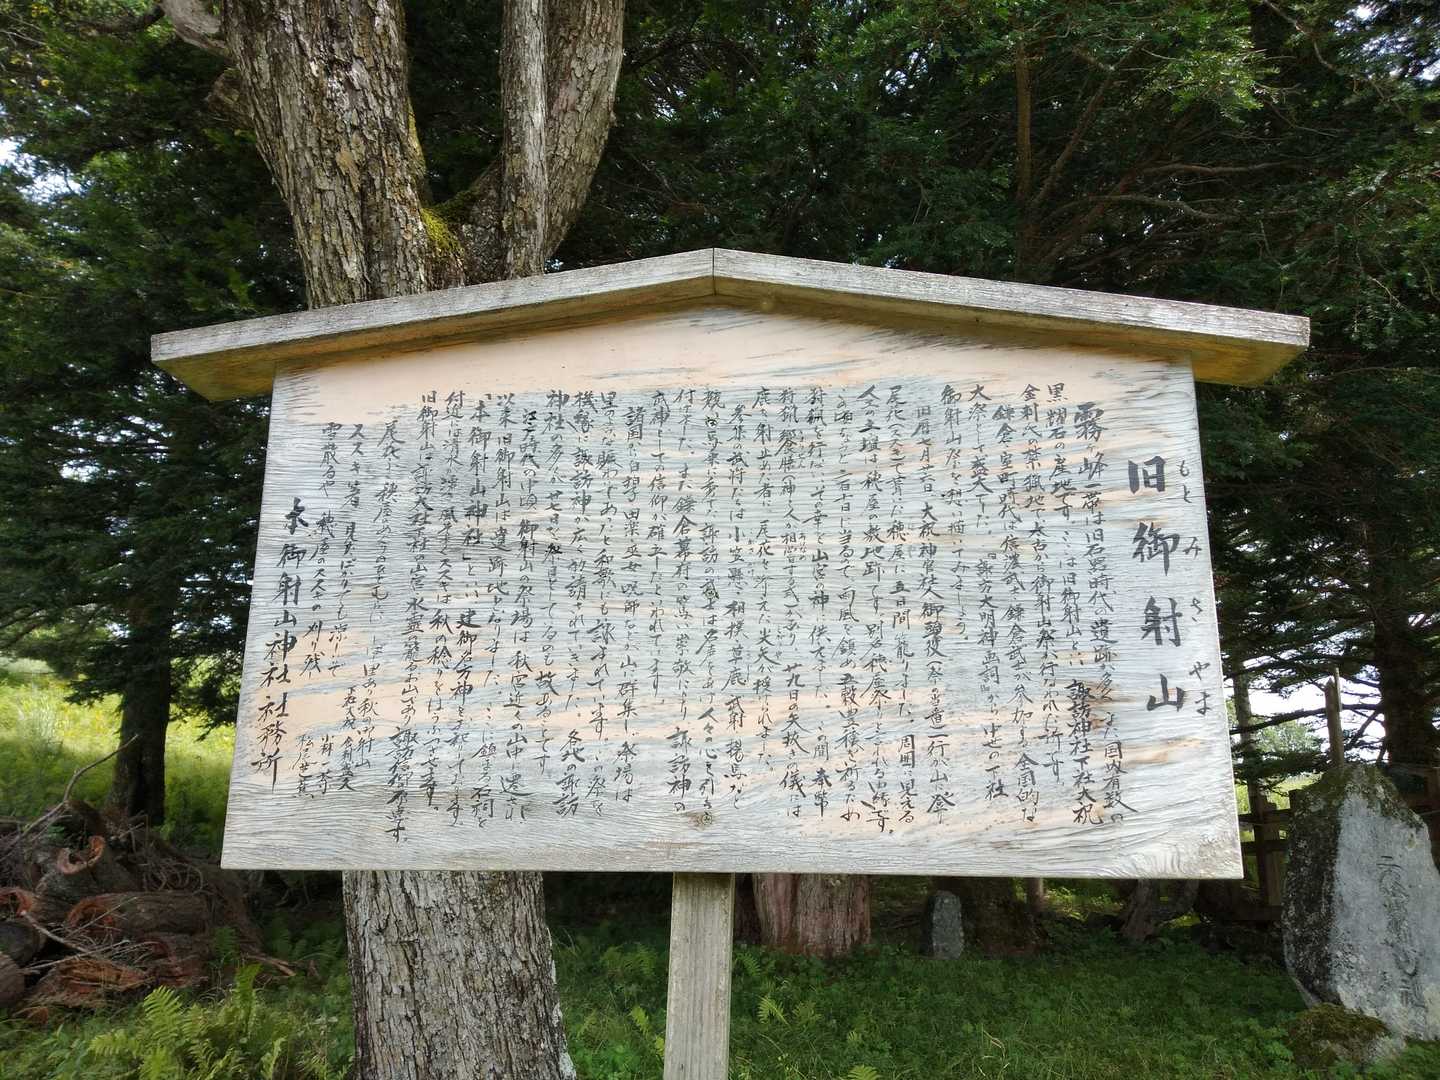 旧御射山
もとみさやま
霧ヶ峰一帯は旧石器時代の遺跡が多く、また国内有数の
黒耀石の産地です。ここは旧御射山と言い、諏訪神社下社大祝
金刺氏の葉猟地で太古から御射山祭が行なわれた所です。
鎌倉、室町時代は信濃武士、鎌倉武士が参加する全国的な
大祭として盛大でした。「諏方大明神画詞」から中世の下社
御射山祭を想い描いてみましょう。
旧暦七月廿六日、大祝神官狭人御頭役
一行が山に登り
尾花(ススキ)で葺いた穂屋に五日間籠りました。周囲に見える
の土壇は穂屋の敷地跡です。別名穂屋祭りといわれる由縁です。
この頃は二百十日に当るので雨風を鎮め五穀豊穣を祈るため
狩猟を行ない、その幸を山宮の神に供えました。この間、奉幣
狩猟、饗膳
があり、廿九日の矢抜の儀には
鹿を射止めた者に、尾花を添えた尖矢が授けられました。
小笠懸、相撲、草鹿、武射、揚馬など
諏訪の武士は
人々の心を引き
付けました。また鎌倉幕府の篤い崇敬により、諏訪神の
武神としての信仰が確立したといわれています。
諸国から白拍子、田楽、巫女、呪師などが山に群集し、祭場は
里のような賑わいであったと和歌にも詠まれています。この祭を
機縁に諏訪神が広く勧請されていきました。各地の諏訪
神社の多くが廿七日を祭日としているのも故あることです。
江戸時代の中頃、御射山の祭場は秋宮近くの山中に遷され
以来、旧御射山は遺跡地となりました。ここに鎮まる石祠を
「本御射山神社」といい建御名方神をお祀りしています。
付近には清水が湧き風そよぐススキは秋の稔りをほうふつさせます。
旧御射山は諏訪大社下社の山宮、水霊の籠るお山であり諏訪信仰の原点です。
尾花ふく穂屋の
御射山
ススキ
見るばかりでも涼しいぞ
雪散るや穂屋のススキの刈り残し
小林一茶
松尾芭蕉
本御射山神社社務所